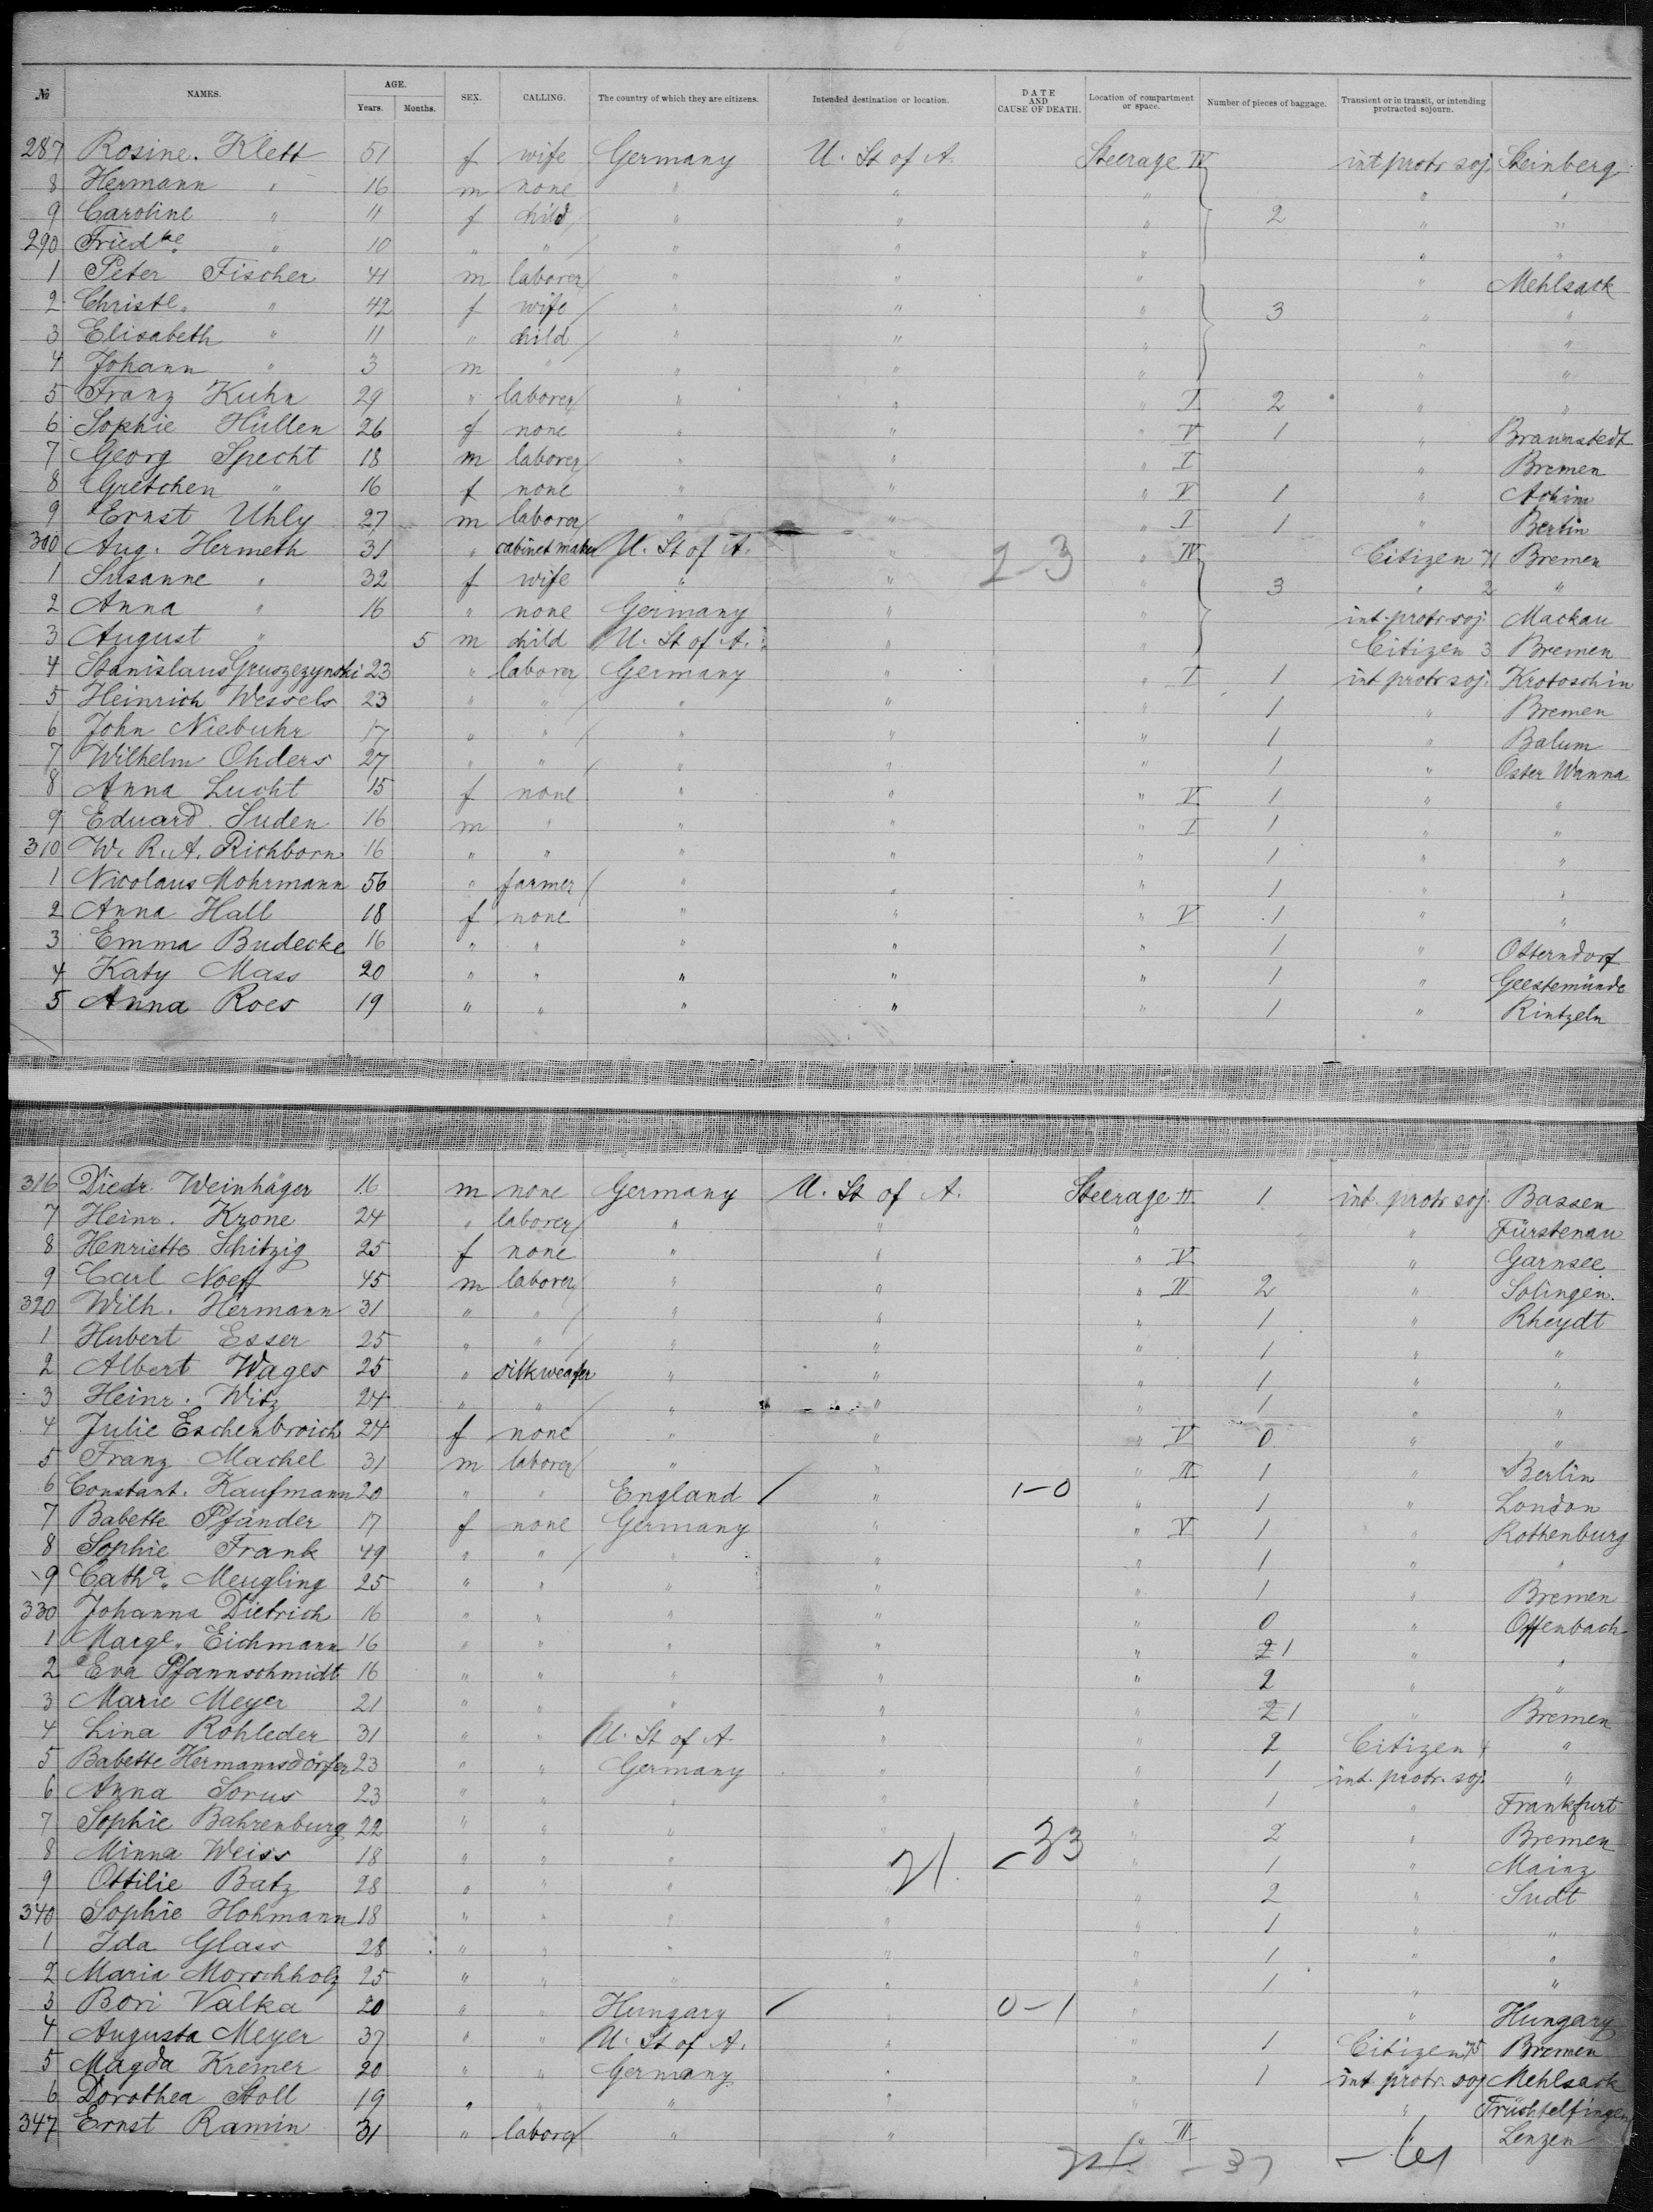 № NAMES. AGE. Years. Months. SEX. CALLING. The country of which they are citizens. Intended destination or location. DATE AND CAUSE OF DEATH. Location of compartment or space. Number of pieces of baggage. Transient or in transit, or intending protracted sojourn.
287 Rosine. Klett 51 f wife Germany U. St of A. Steerage IV int protr soj. Steinberg
8 Hermann " 16 m none " " " " "
9 Caroline " 11 f child " " " 2 " "
290 Friedke " 10 " " " " " " "
1 Peter Fischer 41 m laborer " " " " Mehlsack
2 Christe. " 42 f wife " " " 3 " "
3 Elisabeth " 11 " child " " " " "
4 Johann " 3 m " " " " " "
5 Franz Kuhn 29 " laborer " " " I 2 " "
6 Sophie Hüllen 26 f none " " " V 1 " Braunstedt
7 Georg Specht 18 m laborer " " " I " Bremen
8 Gretchen " 16 f none " " " V 1 " Achim
9 Ernst Uhly 27 m laborer " " " I 1 " Berlin
300 Aug. Hermeth 31 " cabinet maker U. St of A. " 2-3 " IV Citizen 71 Bremen
1 Susanne " 32 f wife " " " 3 " 2 "
2 Anna " 16 " none Germany " " int. protr soj. Mackau
3 August " 5 m child U. St of A. " " Citizen 3 Bremen
4 Stanislaus Gruszezynski 23 " laborer Germany " " I 1 int protr soj. Krotoschin
5 Heinrich Wessels 23 " " " " " 1 " Bremen
6 John Niebuhr 17 " " " " " 1 " Balum
7 Wilhelm Ohders 27 " " " " " 1 " Oster Wanna
8 Anna Lucht 15 f none " " " V 1 " "
9 Eduard Suden 16 m " " " " I 1 " "
310 W. R. A. Richborn 16 " " " " " 1 " "
1 Nicolaus Mohrmann 56 " farmer " " " 1 " "
2 Anna Hall 18 f none " " " V 1 " "
3 Emma Budecke 16 " " " " " 1 " Otterndorf
4 Katy Mass 20 " " " " " 1 " Geestemünde
5 Anna Roes 19 " " " " " 1 " Rintzeln
316 Diedr. Weinhäger 16 m none Germany U. St of A. Steerage II 1 int. protr soj. Bassen
7 Heinr. Krone 24 " laborer " " " " Fürstenau
8 Henriette Schitzig 25 f none " " " V " Garnsee
9 Carl Noeff 45 m laborer " " " II 2 " Solingen.
320 Wilh. Hermann 31 " " " " " 1 " Rheydt
1 Hubert Esser 25 " " " " " 1 " "
2 Albert Wages 25 " silkweafer " " " 1 " "
3 Heinr. Witz 24 " " " " " 1 " "
4 Julie Eschenbroich 24 f none " " " V 0 " "
5 Franz Machel 31 m laborer " " " II 1 " Berlin
6 Constant. Kaufmann 20 " " England " 1-0 " 1 " London
7 Babette Pfänder 17 f none Germany " " V 1 " Rothenburg
8 Sophie Frank 49 " " " " " 1 " "
9 Catha. Meugling 25 " " " " " 1 " Bremen
330 Johanna Dietrich 16 " " " " " 0 " Offenbach
1 Marge. Eichmann 16 " " " " " 2 1 " "
2 Eva Pfannschmidt 16 " " " " " 2 " "
3 Marie Meyer 21 " " " " " 2 1 " Bremen
4 Lina Rohleder 31 " " U. St of A. " " 2 Citizen 4 "
5 Babette Hermannsdörfer 23 " " Germany " " 1 int. protr. soj. "
6 Anna Sorus 23 " " " " " 1 " Frankfurt
7 Sophie Bahrenburg 22 " " " " " 2 " Bremen
8 Minna Weiss 18 " " " 21. -33 " 1 " Mainz
9 Ottilie Batz 28 " " " " " 2 " Sudt
340 Sophie Hohmann 18 " " " " " 1 " "
1 Ida Glass 28 " " " " " 1 " "
2 Maria Morschholz 25 " " " " " 1 " "
3 Bori Valka 20 " " Hungary " 0-1 " " Hungary
4 Augusta Meyer 37 " " U. St of A. " " 1 Citizen 75 Bremen
5 Magda Kremer 20 " " Germany " " 1 int protr. soj Mehlsack
6 Dorothea Stoll 19 " " " " " " Früchtelfingen
347 Ernst Ramin 31 " laborer " " " II " Lenzen
- 37 - 61